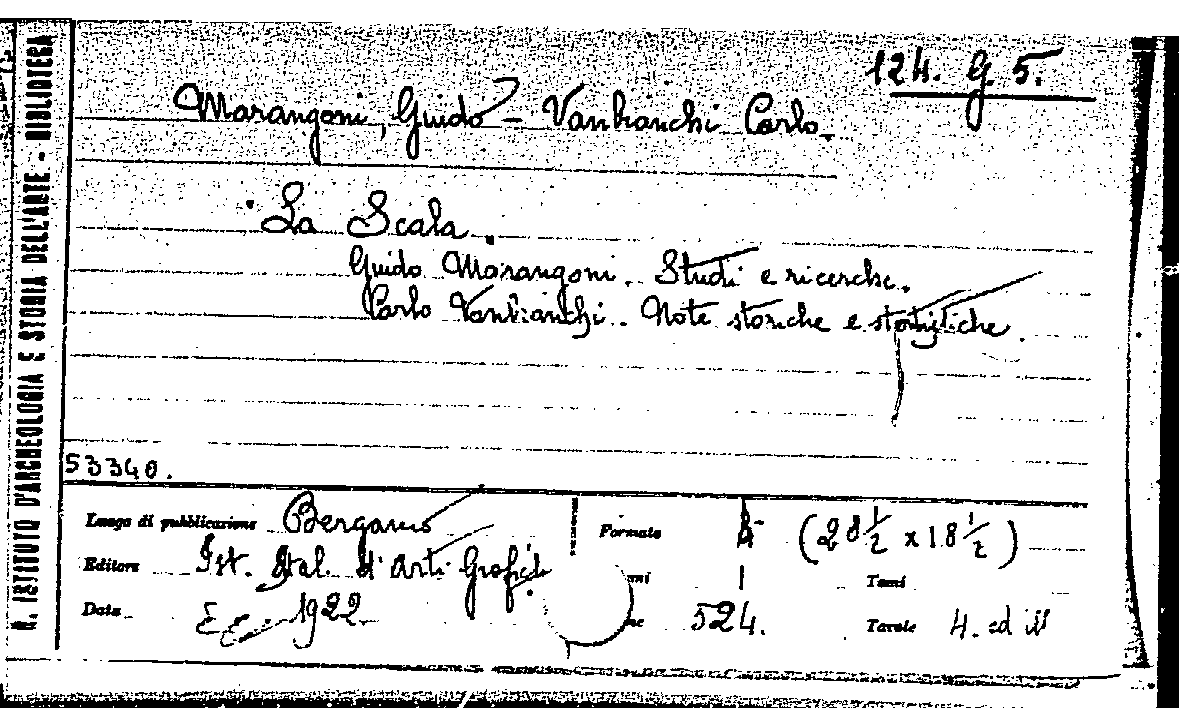 R. ISTITUTO D'ARCHEOLOGIA E STORIA DELL'ARTE - BIBLIOTECA
124. G 5.
Marangoni, Guido - Vanbianchi Carlo.
La Scala.
Guido Marangoni. Studi e ricerche.
Carlo Vanbianchi. Note storiche e statistiche.
53340.
Luogo di pubblicazione Bergamo
Formato (28 1/2 x 18 1/2)
Editore Ist. Ital. d'Arti Grafiche.
1 Tomi
Data 1922
524. Tavole 4. ed ill